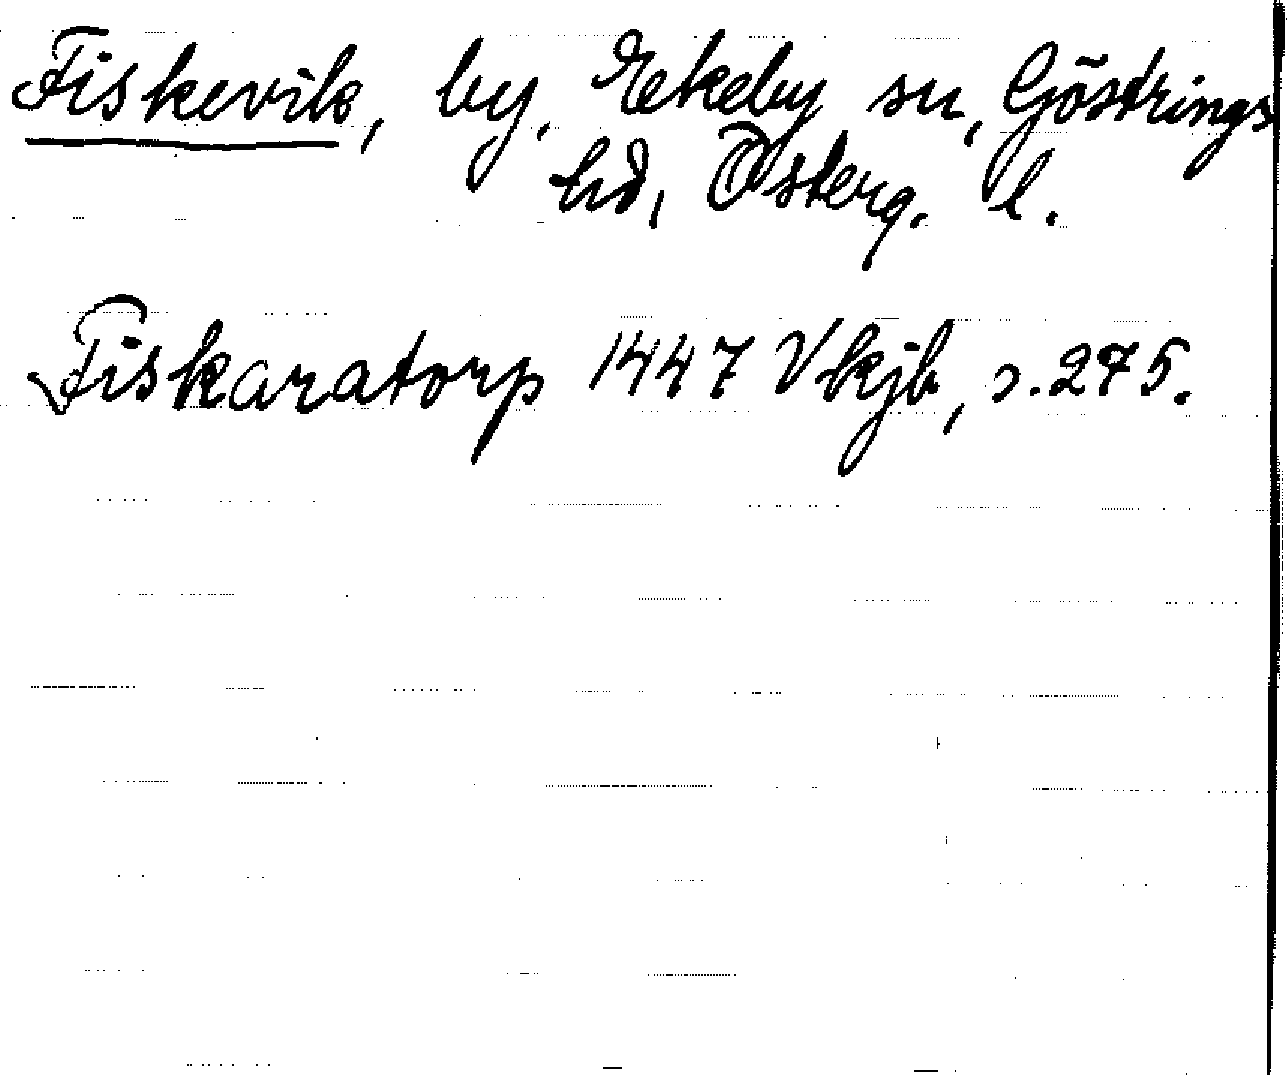 Fiskevik, by, Ekeby sn, Göstrings
hd, Österg. l.
Fiskaratorp 1447 Vkjb, s. 275.